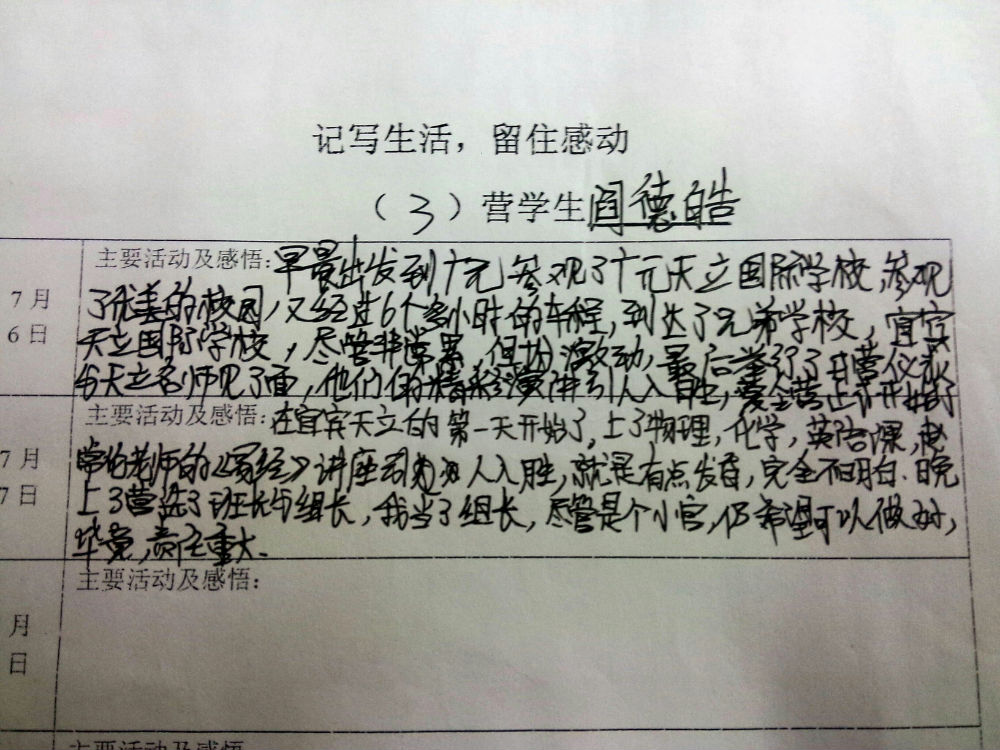 记写生活，留住感动
（3）营学生闫德皓
主要活动及感悟：早晨出发到广元参观了广元天立国际学校，参观
7月
了优美的校园，又经过6个多小时的车程，到达了兄弟学校，宜宾
6日
天立国际学校，尽管非常累，但十分激动，最后举行了开营仪式
与天立名师见了面，他们的精彩演讲引人入胜，夏令营正式开始了
主要活动及感悟：在宜宾天立的第一天开始了，上了物理，化学，英语课，赵
7月
老师的《易经》讲座引人入胜，就是有点发昏，完全不明白。晚
7日
上了营选了班长与组长，我当了组长，尽管是个小官，仍希望可以做好，
毕竟，责任重大.
主要活动及感悟：
月
日
主要活动及感悟